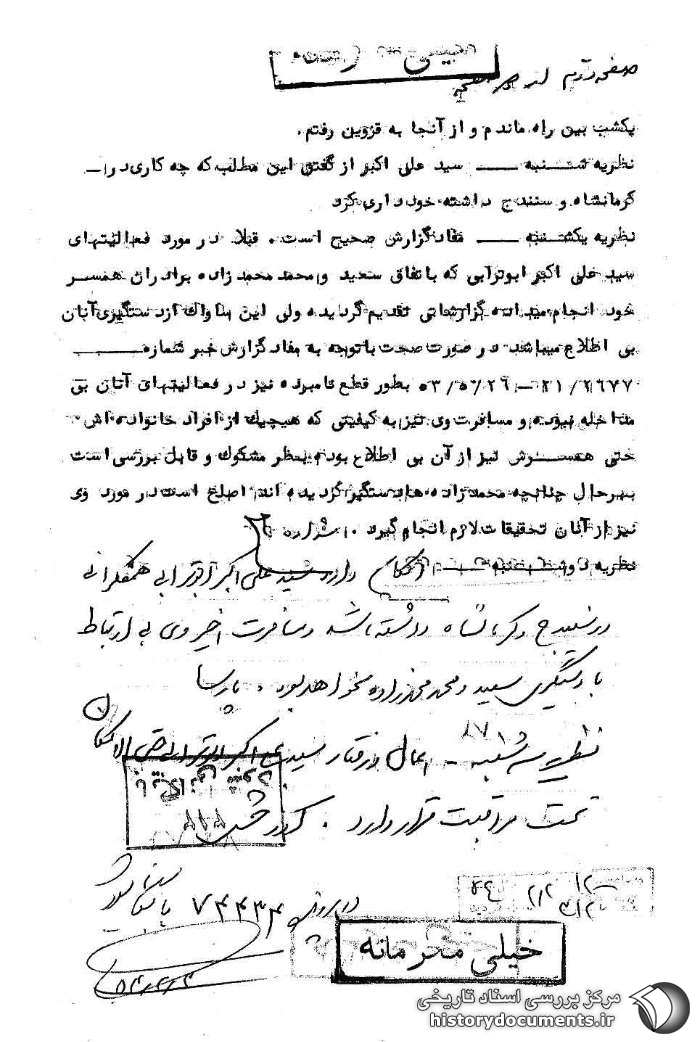 صفحه دوم از
خیلی محرمانه
یکشب بین راه ماندم و از آنجا به قزوین رفتم.
نظریه شنبه ــــ سید علی اکبر از گفتن این مطلب که چه کاری در
کرمانشاه و سنندج داشته خودداری کرد
نظریه یکشنبه ــــ مفاد گزارش صحیح است. قبلا در مورد فعالیتهای
سید علی اکبر ابوترابی که باتفاق سعید و محمد محمدزاده برادران همسر
خود انجام میداده گزارشاتی تقدیم گردیده ولی این ساواک از دستگیری آنان
بی اطلاع میباشد در صورت صحت باتوجه به مفاد گزارش خبر شماره
۲۱/۲۶۷۷ ــ ۵۳/۵/۲۶ بطور قطع نامبرده نیز در فعالیتهای آنان بی
مداخله نبوده و مسافرت وی نیز به کیفیتی که هیچیک از افراد خانواده اش
حتی همسرش نیز از آن بی اطلاع بوده بنظر مشکوک و قابل بررسی است
بهرحال چنانچه محمدزاده ها دستگیر گردیده اند اصلح است در مورد وی
نیز از آنان تحقیقات لازم انجام گیرد.
نظریه دوشنبه ــــ امکان دارد سید علی اکبر ابوترابی همفکرانی
در سنندج و کرمانشاه داشته باشد و مسافرت اخیر وی بی ارتباط
با دستگیری سعید و محمد محمدزاده نخواهد بود. پارسا
نظریه سه شنبه ـ اعمال و رفتار سید علی اکبر ابوترابی حتی الامکان
تحت مراقبت قرار دارد.
در پرونده ۷۴۴۳۴ بایگانی شود
خیلی محرمانه
مرکز بررسی اسناد تاریخی
historydocuments.ir